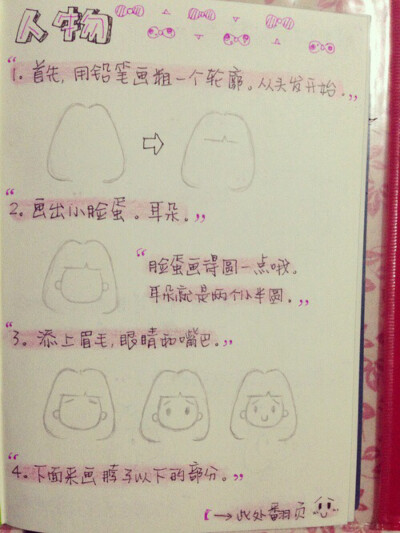 人物
“1. 首先,用铅笔画粗一个轮廓。从头发开始.”
“2. 画出小脸蛋。耳朵.”
“脸蛋画得圆一点哦。
耳朵就是两个小半圆.”
“3. 添上眉毛,眼睛和嘴巴.”
“4. 下面来画脖子以下的部分。”
→此处翻页